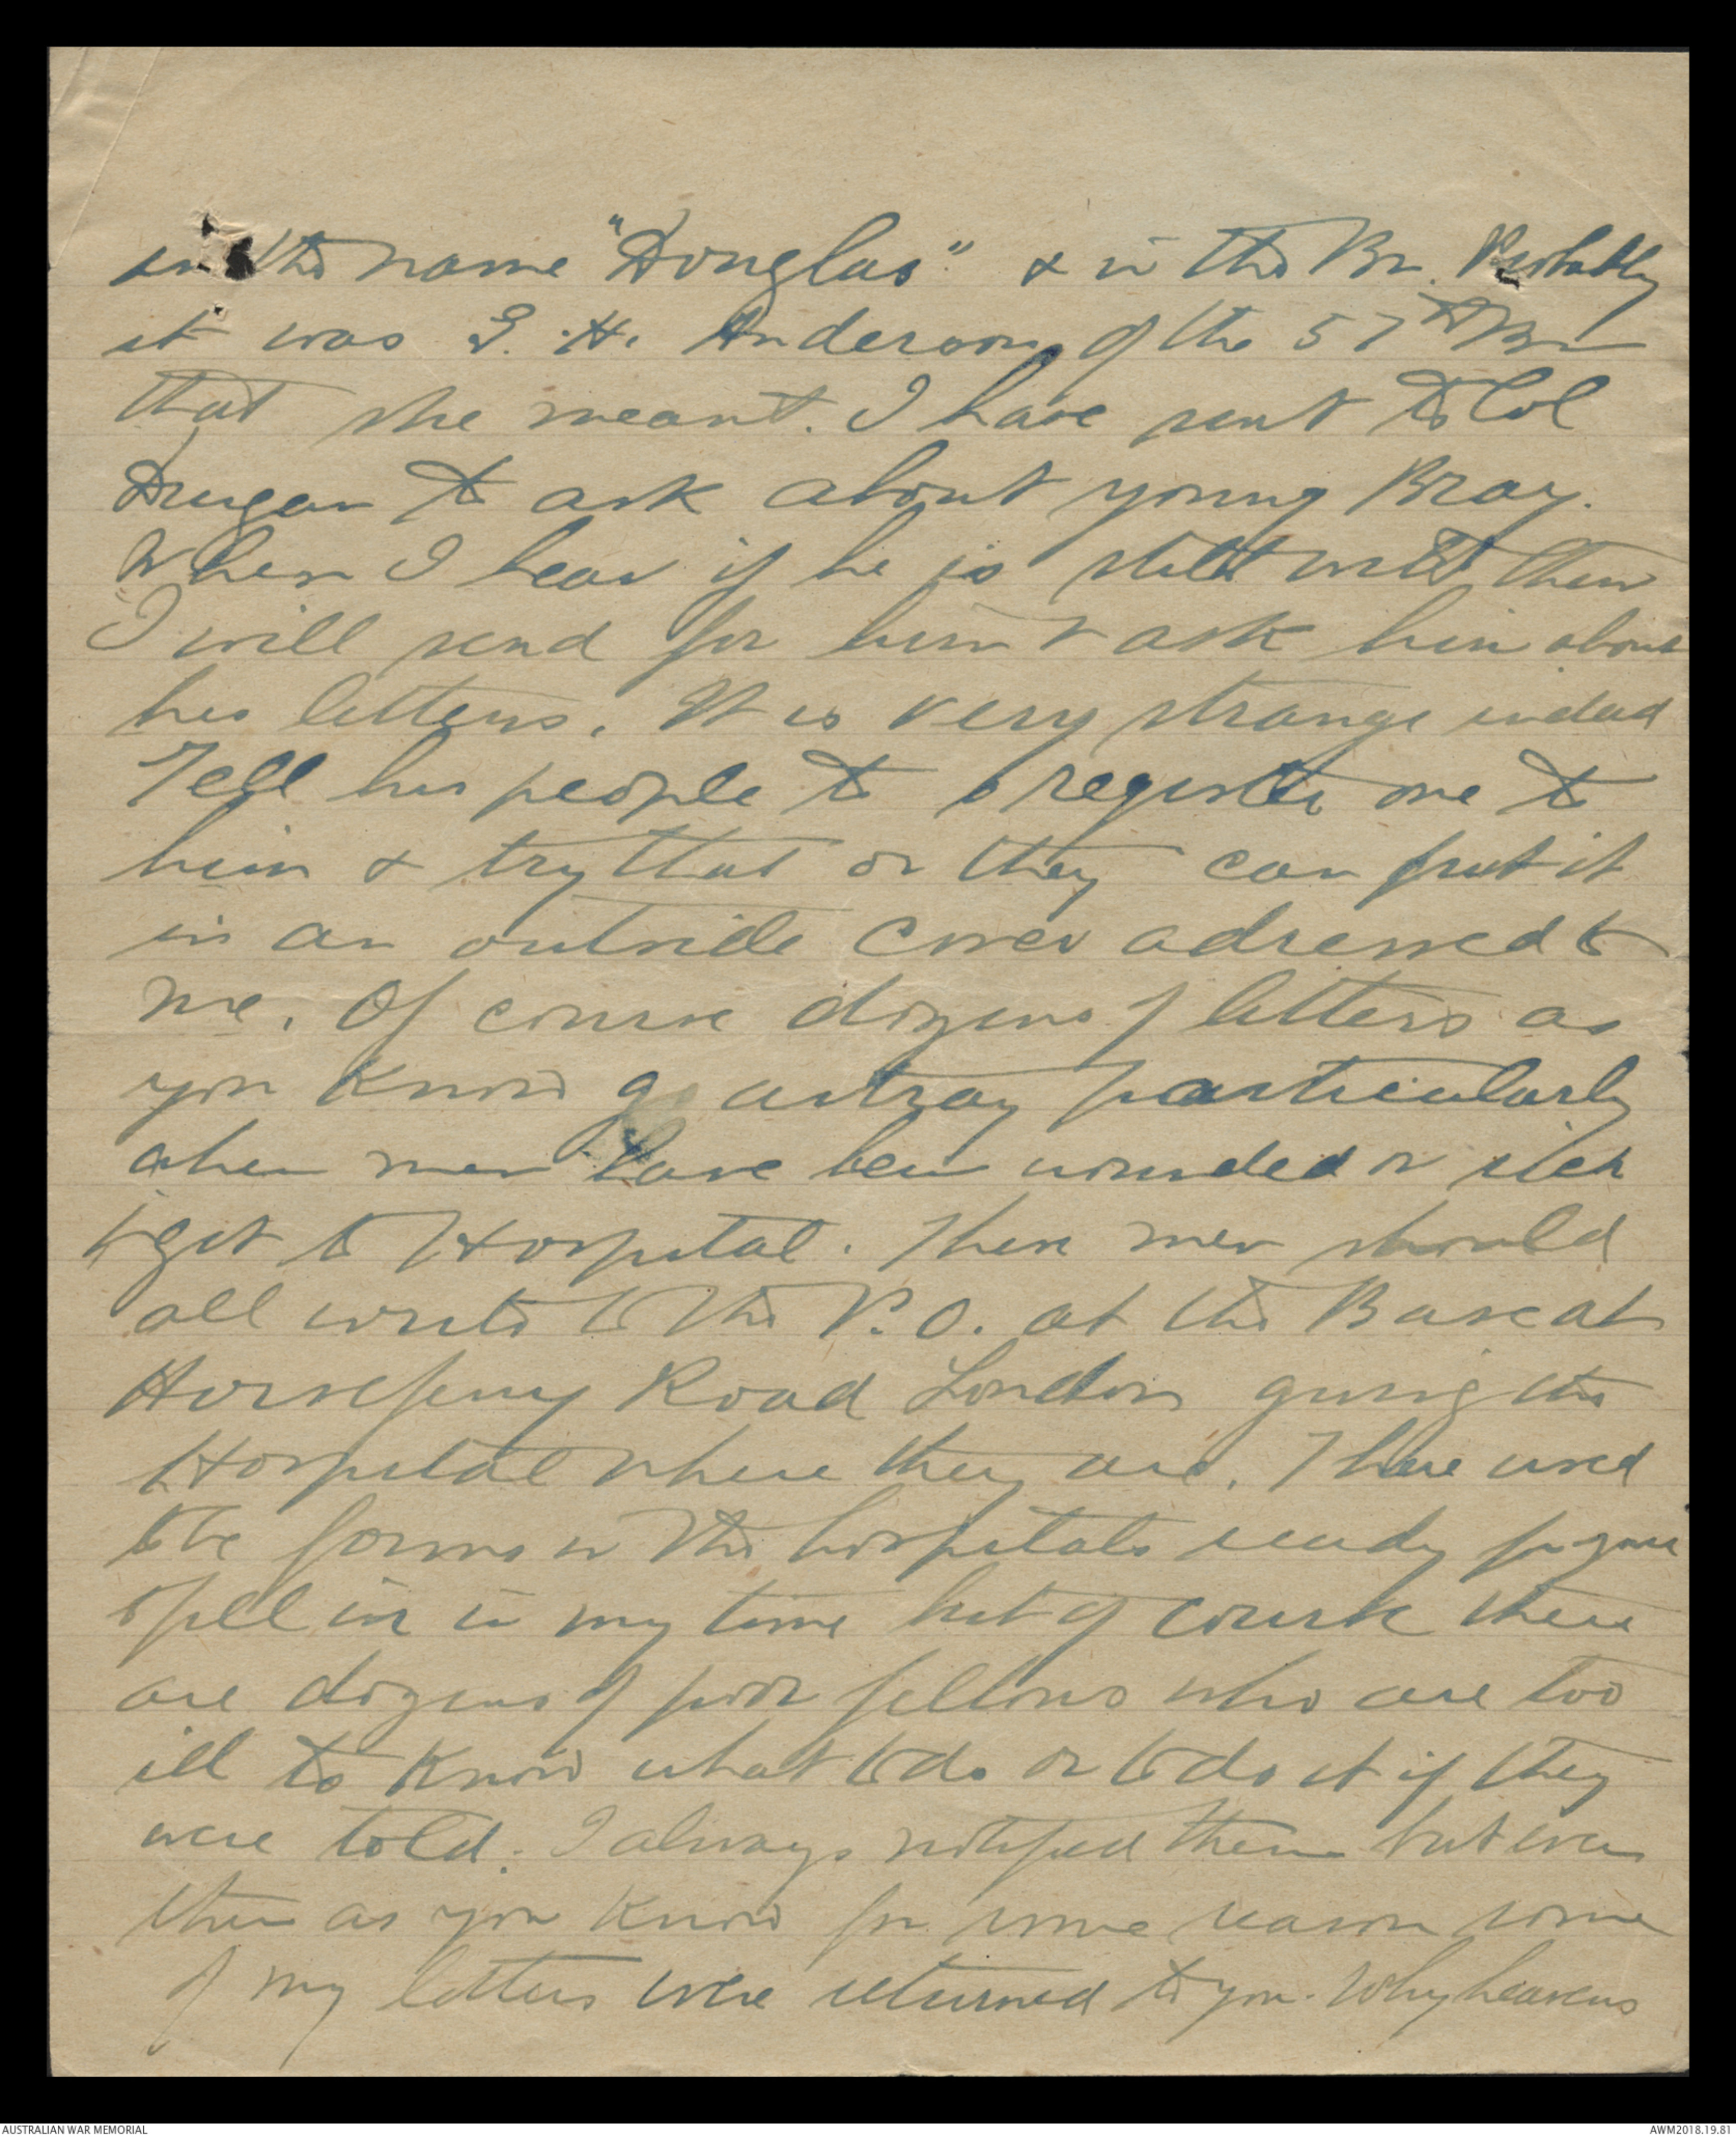 in the name "Douglas" & in the Bn. Probably
it was G. H. Anderson of the 57th Bn
that she meant. I have sent to Col
Duigan to ask about young Bray.
When I hear if he is still with them
I will send for him & ask him about
his letters. It is very strange indeed
Tell his people to register one to
him & try that or they can put it
in an outside cover adressed to
me. Of course dozens of letters as
you know go astray particularly
when men have been wounded or sick
& got to Hospital. These men should
all write to the P.O. at the Base at
Horseferry Road London giving the
Hospital where they are. There used
to be forms in the hospitals ready for you
to fill in in my time but of course there
are dozens of poor fellows who are too
ill to know what to do or to do it if they
were told. I always notified them but even
then as you know for some reason some
of my letters were returned to you. Why heavens
AUSTRALIAN WAR MEMORIAL
AWM2018.19.81